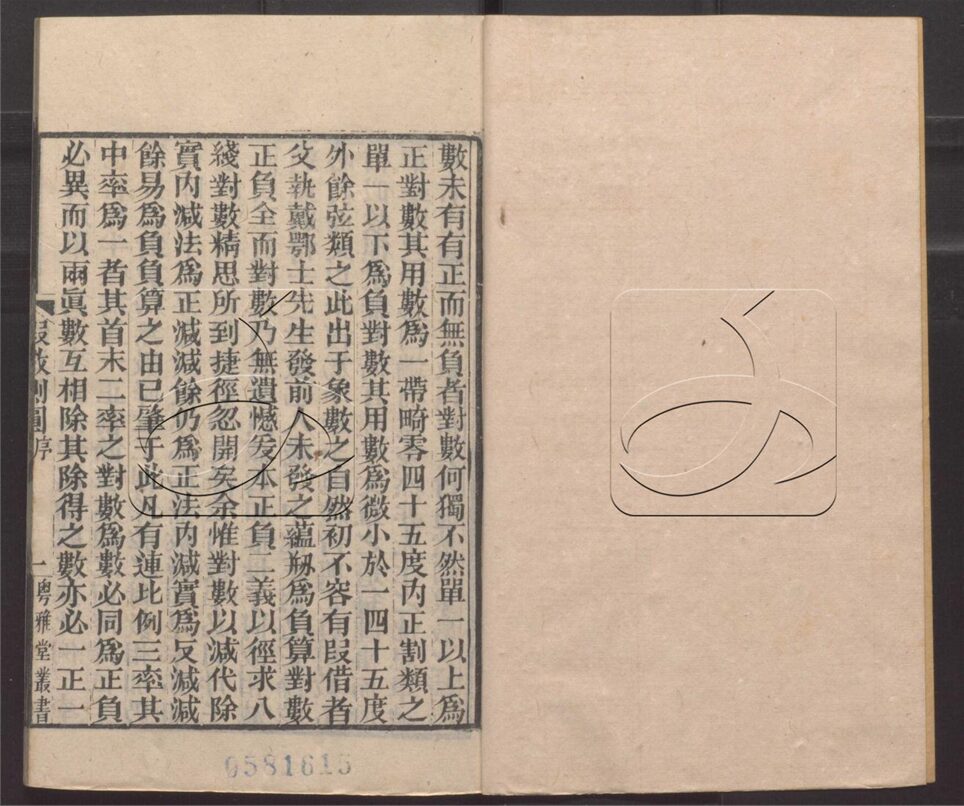 數未有有正而無負者對數何獨不然單一以上爲
正對數其用數爲一帶畸零四十五度內正割類之
單一以下爲負對數其用數爲微小於一四十五度
外餘弦類之此出于象數之自然初不容有叚借者
父執戴鄂士先生發前人未發之蘊剏爲負算對數
正負全而對數乃無遺憾爰本正負二義以徑求八
綫對數精思所到捷徑忽開矣余惟對數以減代除
實內減法爲正減減餘仍爲正法內減實爲反減減
餘易爲負負算之由已肇于此凡有連比例三率其
中率爲一者其首末二率之對數爲數必同爲正負
必異而以兩眞數互相除其除得之數亦必一正一
叚數測圓序
一
粵雅堂叢書
0581615